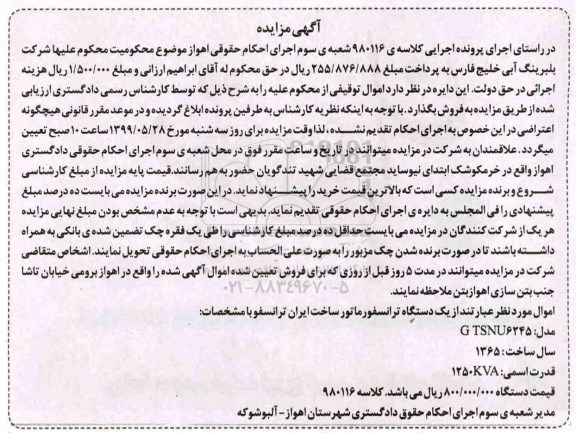 آگهی مزایده
در راستای اجرای پرونده اجرایی کلاسه ی ۹۸۰۱۱۶ شعبه ی سوم اجرای احکام حقوقی اهواز موضوع محکومیت محکوم علیها شرکت
بلبرینگ آبی خلیج فارس به پرداخت مبلغ ۲۵۵/۸۷۶/۸۸۸ ریال در حق محکوم له آقای ابراهیم ارزانی و مبلغ ۱/۵۰۰/۰۰۰ ریال هزینه
اجرائی در حق دولت. این دایره در نظر دارد اموال توقیفی از محکوم علیه را به شرح ذیل که توسط کارشناس رسمی دادگستری ارزیابی
شده از طریق مزایده به فروش بگذارد. با توجه به اینکه نظریه کارشناس به طرفین پرونده ابلاغ گردیده و در موعد مقرر قانونی هیچگونه
اعتراضی در این خصوص به اجرای احکام تقدیم نشده، لذا وقت مزایده برای روز سه شنبه مورخ ۱۳۹۹/۰۵/۲۸ ساعت ۱۰ صبح تعیین
میگردد. علاقمندان به شرکت در مزایده میتوانند در تاریخ و ساعت مقرر فوق در محل شعبه ی سوم اجرای احکام حقوقی دادگستری
اهواز واقع در خرمکوشک ابتدای نیوساید مجتمع قضایی شهید تندگویان حضور به هم رسانند. قیمت پایه مزایده از مبلغ کارشناسی
شروع و برنده مزایده کسی است که بالاترین قیمت خرید را پیشنهاد نماید. در این صورت برنده مزایده می بایست ده درصد مبلغ
پیشنهادی را فی المجلس به دایره ی اجرای احکام حقوقی تقدیم نماید. بدیهی است با توجه به عدم مشخص بودن مبلغ نهایی مزایده
هر یک از شرکت کنندگان در مزایده می بایست حداقل ده درصد مبلغ کارشناسی را طی یک فقره چک تضمین شده ی بانکی به همراه
داشته باشند تا در صورت برنده شدن چک مزبور را به صورت علی الحساب به اجرای احکام حقوقی تحویل نمایند. اشخاص متقاضی
شرکت در مزایده میتوانند در مدت ۵ روز قبل از روزی که برای فروش تعیین شده اموال آگهی شده را واقع در اهواز برومی خیابان تاشا
جنب بتن سازی اهواز بتن ملاحظه نمایند.
۰۲۱-۸۸۳۴۹۶۷۰-۵
اموال مورد نظر عبارتند از یک دستگاه ترانسفورماتور ساخت ایران ترانسفو با مشخصات:
مدل: G TSNU۶۲۴۵
سال ساخت: ۱۳۶۵
قدرت اسمی: ۱۲۵۰KVA
قیمت دستگاه ۸۰۰/۰۰۰/۰۰۰ ریال می باشد. کلاسه ۹۸۰۱۱۶
مدیر شعبه ی سوم اجرای احکام حقوق دادگستری شهرستان اهواز - آلبوشوکه